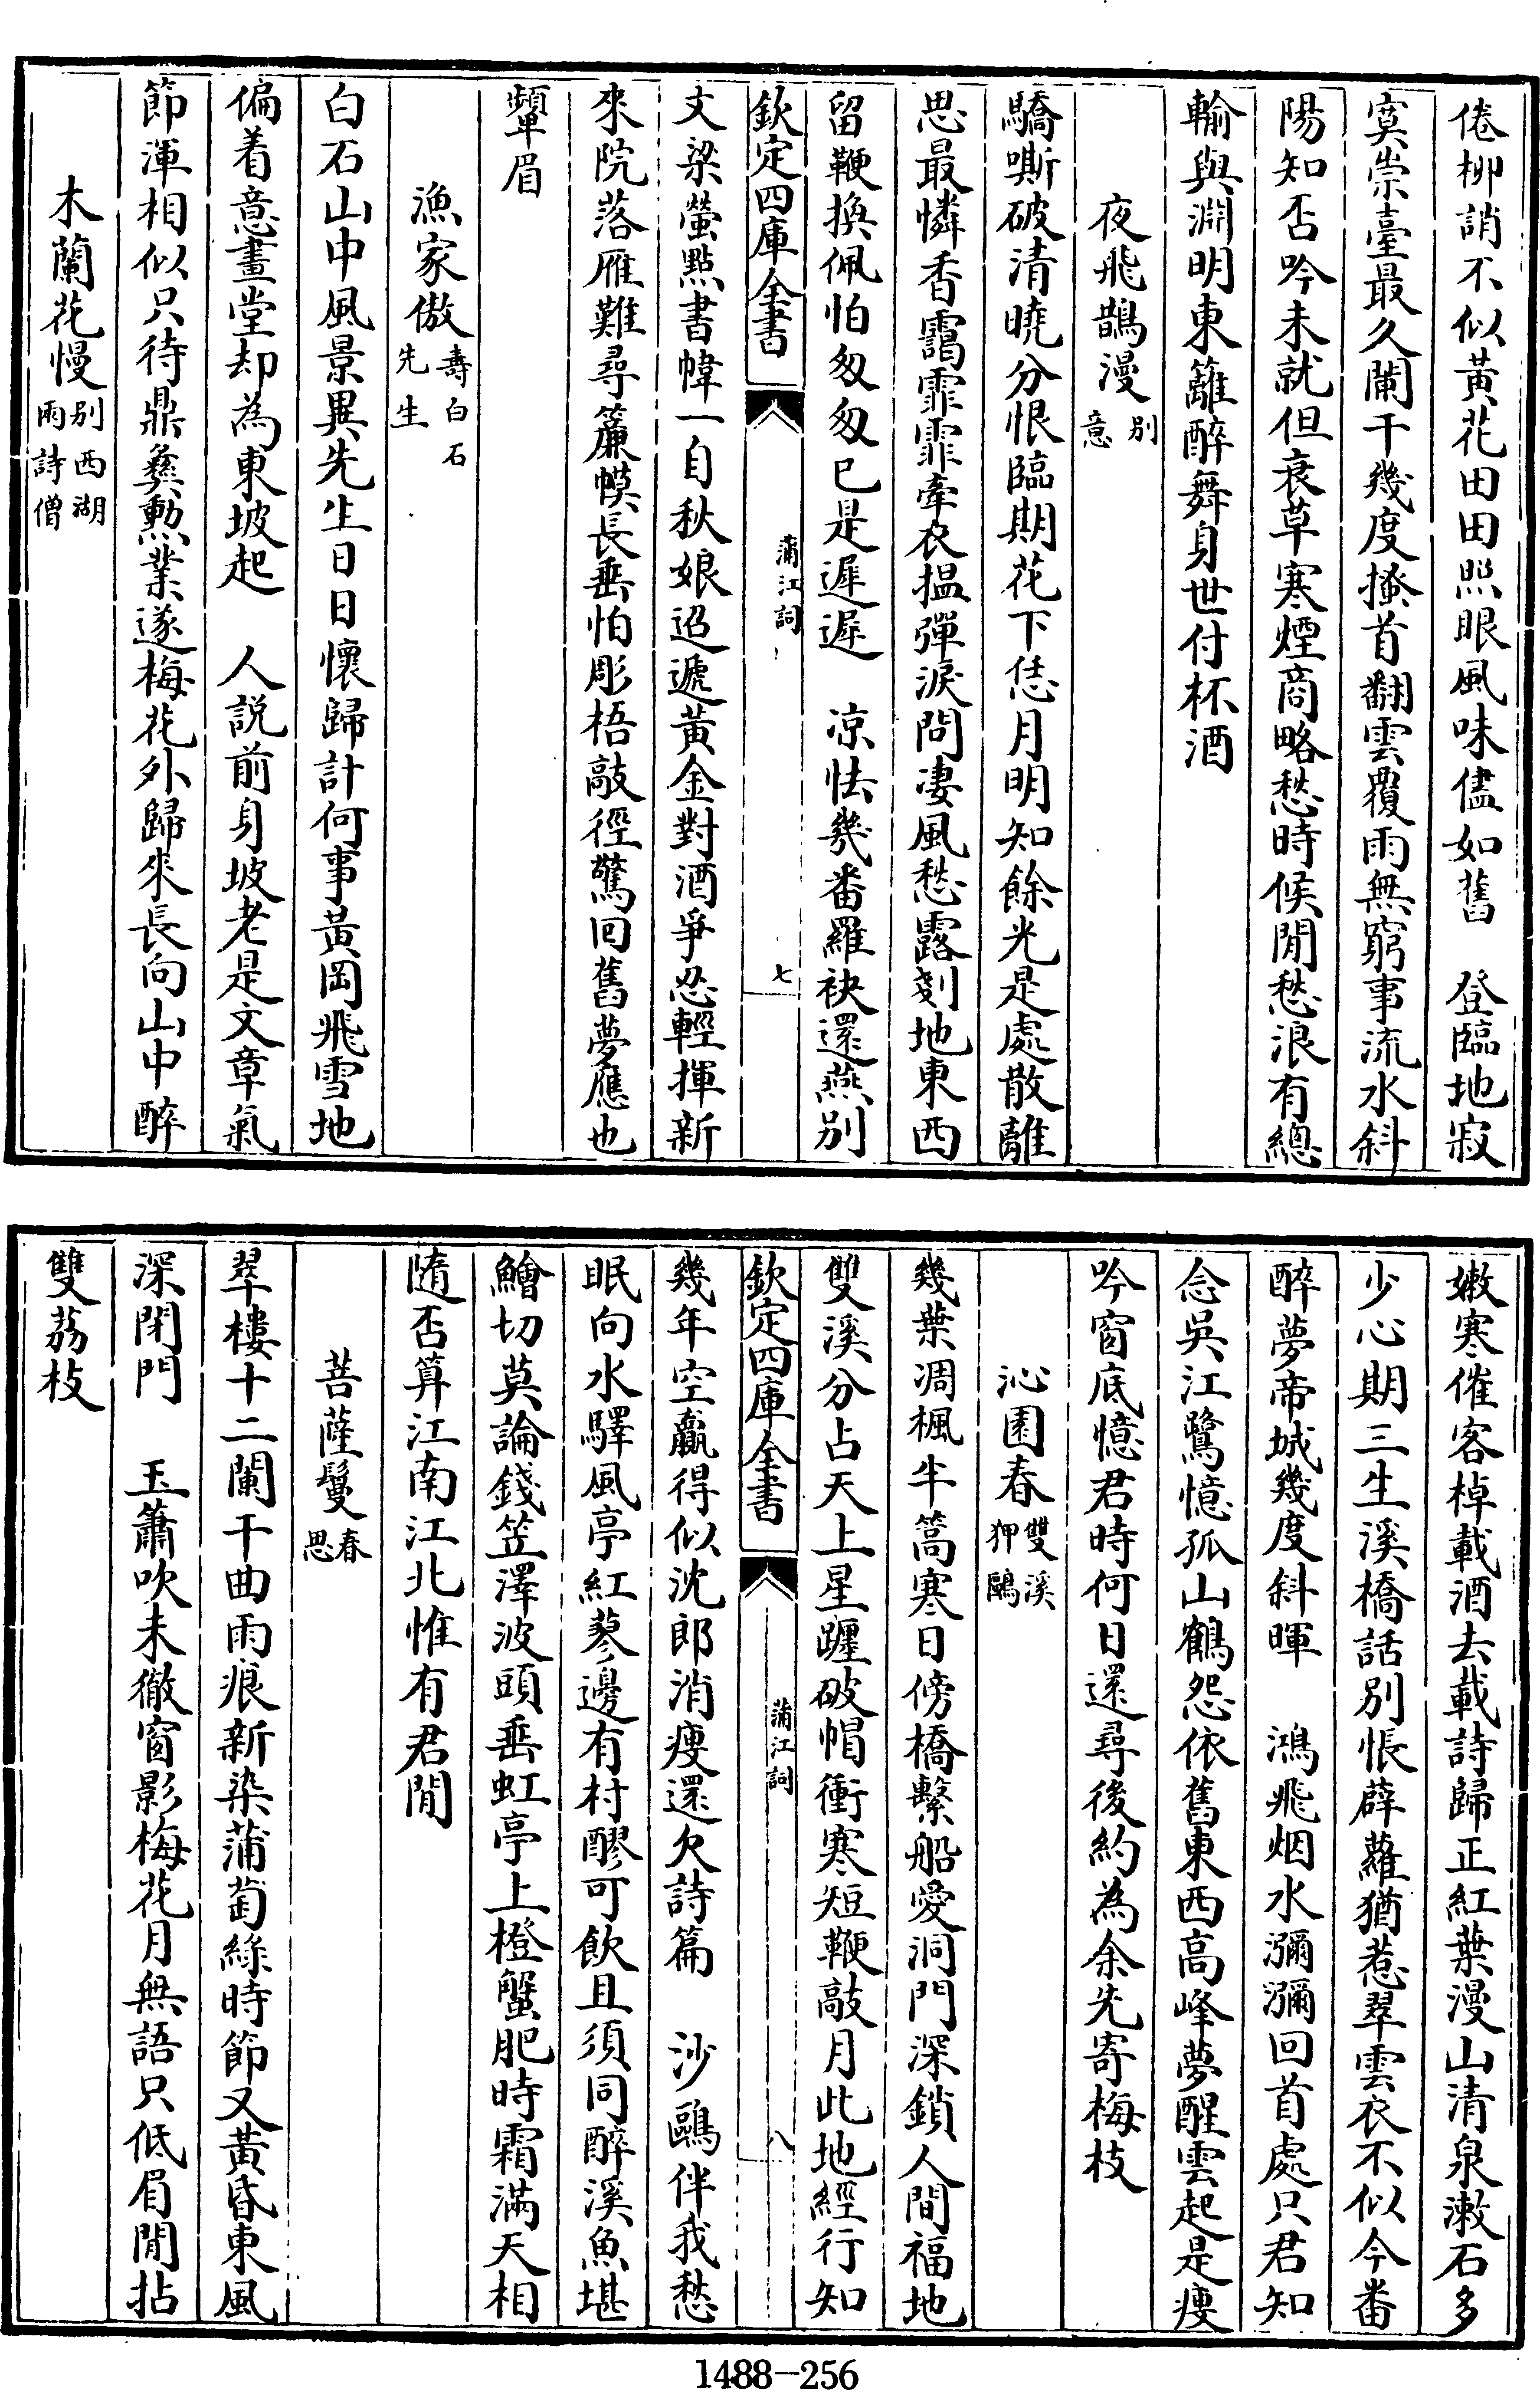 倦栁誚不似黃花田田照眼風味儘如舊　登臨地寂
寞崇臺最久闌干幾度搔首翻雲覆雨無窮事流水斜
陽知否吟未就但衰草寒煙商略愁時候閒愁浪有總
輸與淵明東籬醉舞身世付杯酒
夜飛鵲漫別意
驕嘶破清曉分恨臨期花下恁月明知餘光是處散離
思最憐香靄霏霏牽衣搵彈淚問凄風愁露剗地東西
留鞭換佩怕匆匆已是遲遲　凉怯幾番羅袂還燕別
欽定四庫全書
蒲江詞
七
文梁螢㸃書幃一自秋娘迢遞黃金對酒爭忍輕揮新
來院落雁難尋簾幙長垂怕彫梧敲徑驚回舊夢應也
顰眉
漁家傲壽白石先生
白石山中風景異先生日日懷歸計何事黃岡飛雪地
偏着意畫堂却為東坡起　人說前身坡老是文章氣
節渾相似只待鼎彝勲業遂梅花外歸來長向山中醉
木蘭花慢別西湖兩詩僧
嫩寒催客棹載酒去載詩歸正紅葉漫山清泉漱石多
少心期三生溪橋話別悵薜蘿猶惹翠雲衣不似今番
醉夢帝城幾度斜暉　鴻飛烟水瀰瀰回首處只君知
念吳江鷺憶孤山鶴怨依舊東西高峰夢醒雲起是瘦
吟窗底憶君時何日還尋後約為余先寄梅枝
沁園春雙溪狎鷗
幾葉凋楓半篙寒日傍橋繫船愛洞門深鎖人間福地
雙溪分占天上星躔破帽衝寒短鞭敲月此地經行知
欽定四庫全書
蒲江詞
八
幾年空贏得似沈郎消瘦還欠詩篇　沙鷗伴我愁
眠向水驛風亭紅蓼邊有村醪可飲且須同醉溪魚堪
鱠切莫論錢笠澤波頭垂虹亭上橙蟹肥時霜滿天相
隨否算江南江北惟有君閒
菩薩鬘春思
翠樓十二闌干曲雨痕新染蒲萄綠時節又黃昏東風
深閉門　玉簫吹未徹窗影梅花月無語只低眉閒拈
雙荔枝
1488-256